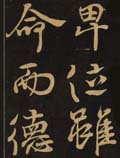 卑位雖
命而德